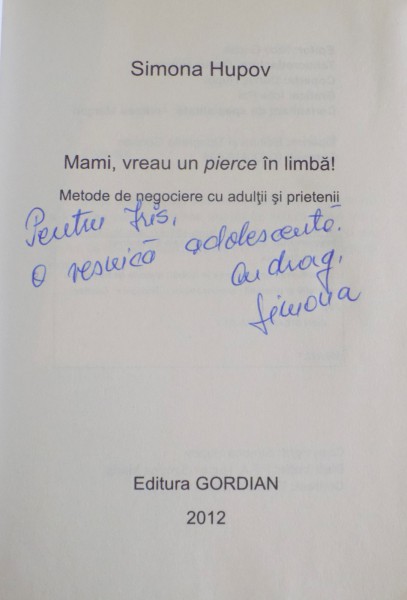 Simona Hupov
Mami, vreau un pierce în limbă!
Metode de negociere cu adulţii şi prietenii
Pentru Iris,
O veşnică adolescentă.
Cu drag,
Simona
Editura GORDIAN
2012